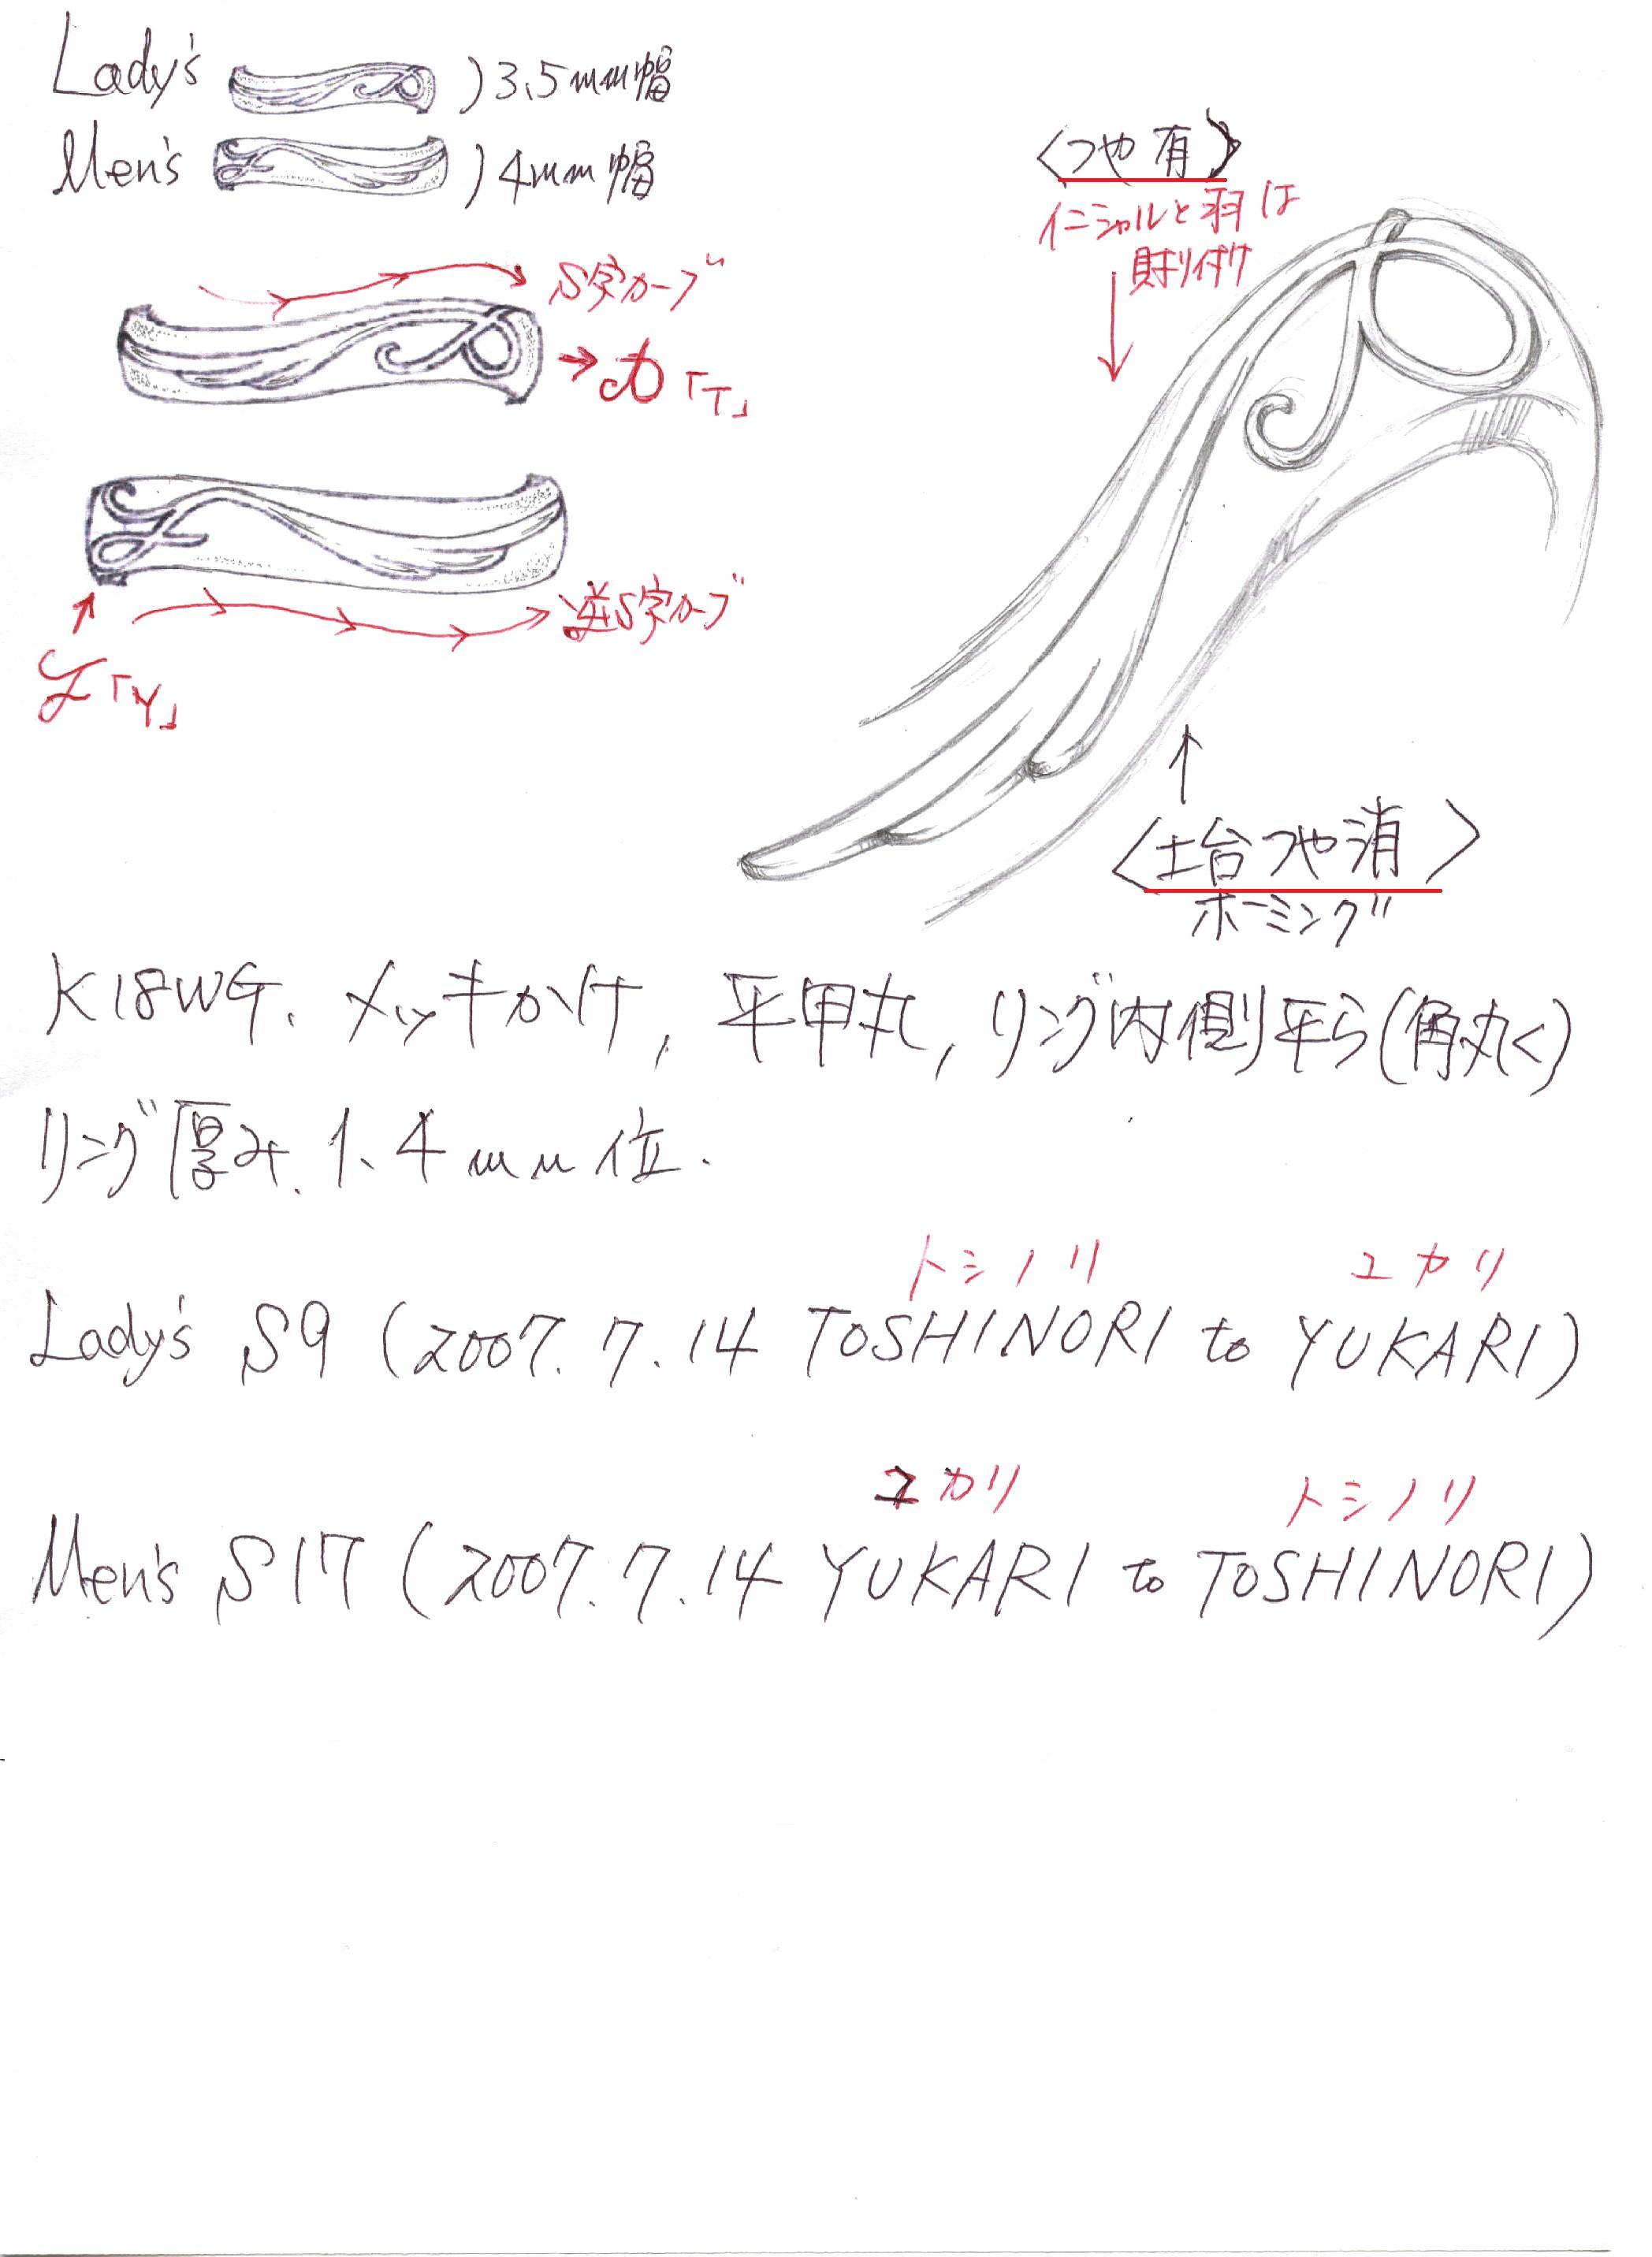 Lady's )3.5mm幅
Men's )4mm幅
S字カーブ
→ 「T」
逆S字カーブ
「Y」
〈つや有〉
イニシャルと羽は
貼り付け
〈土台つや消〉
ホーミング
K18WG、メッキかけ,平甲丸,リング内側平ら(角丸く)
リング厚み、1.4mm位.
トシノリ ユカリ
Lady's S9 (2007.7.14 TOSHINORI to YUKARI)
ユカリ トシノリ
Men's S17 (2007.7.14 YUKARI to TOSHINORI)